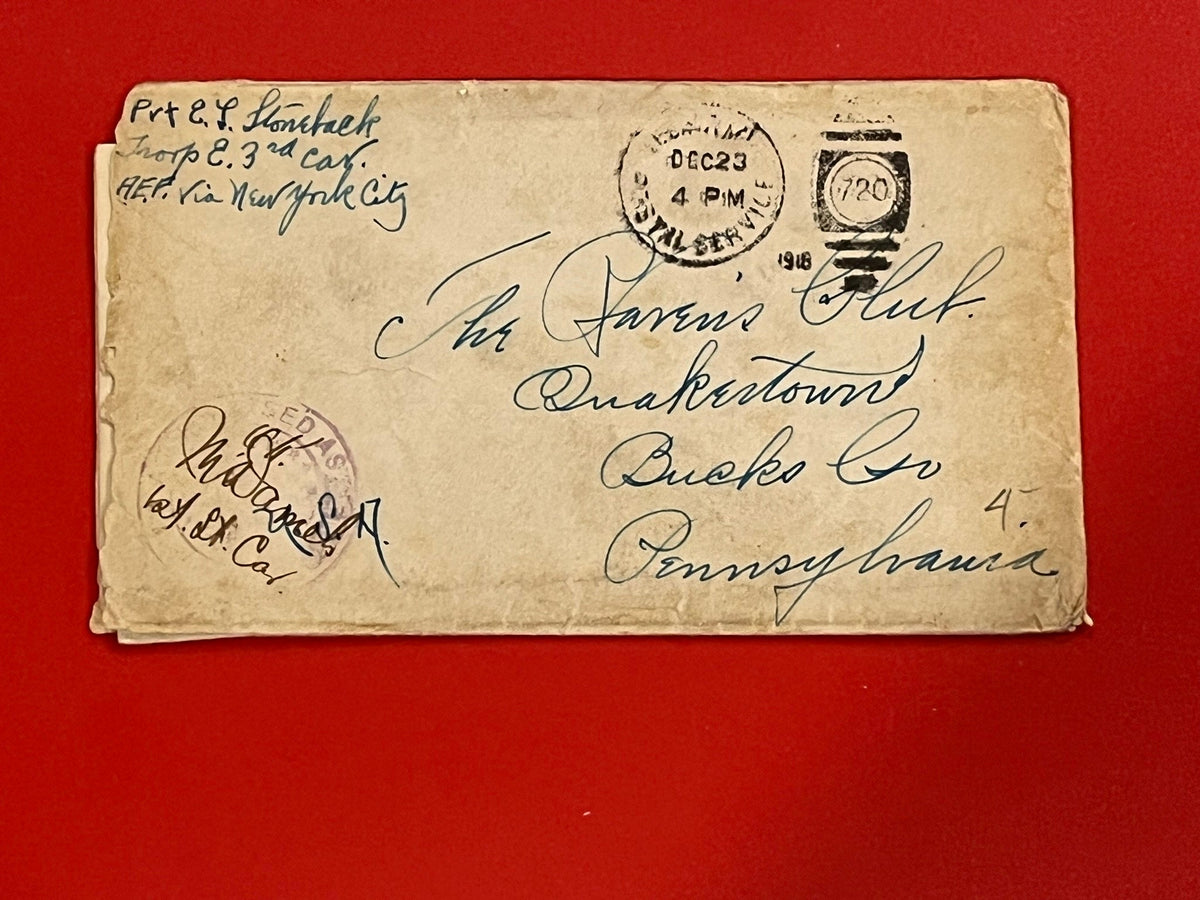 Pvt E. L. Stoneback
Troop E. 3rd Cav.
A.E.F. Via New York City
DEC 23
4 PM
POSTAL SERVICE
1918
720
The Raven's Club.
Quakertown
Bucks Co
Pennsylvania
4.
1st. Lt. Cav